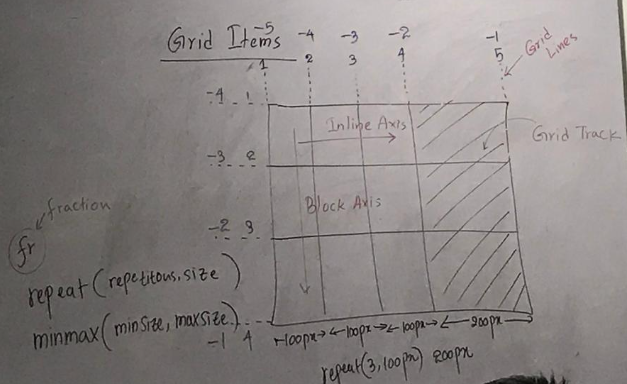 Grid Items
-5 -4 -3 -2 -1
1 2 3 4 5
Grid Lines
-4 1
Inline Axis
Grid Track
-3 2
Block Axis
fraction
fr
-2 3
repeat(repetitous, size)
minmax(minsize, maxsize)
-1 4
100px 100px 100px 200px
repeat(3, 100px) 200px